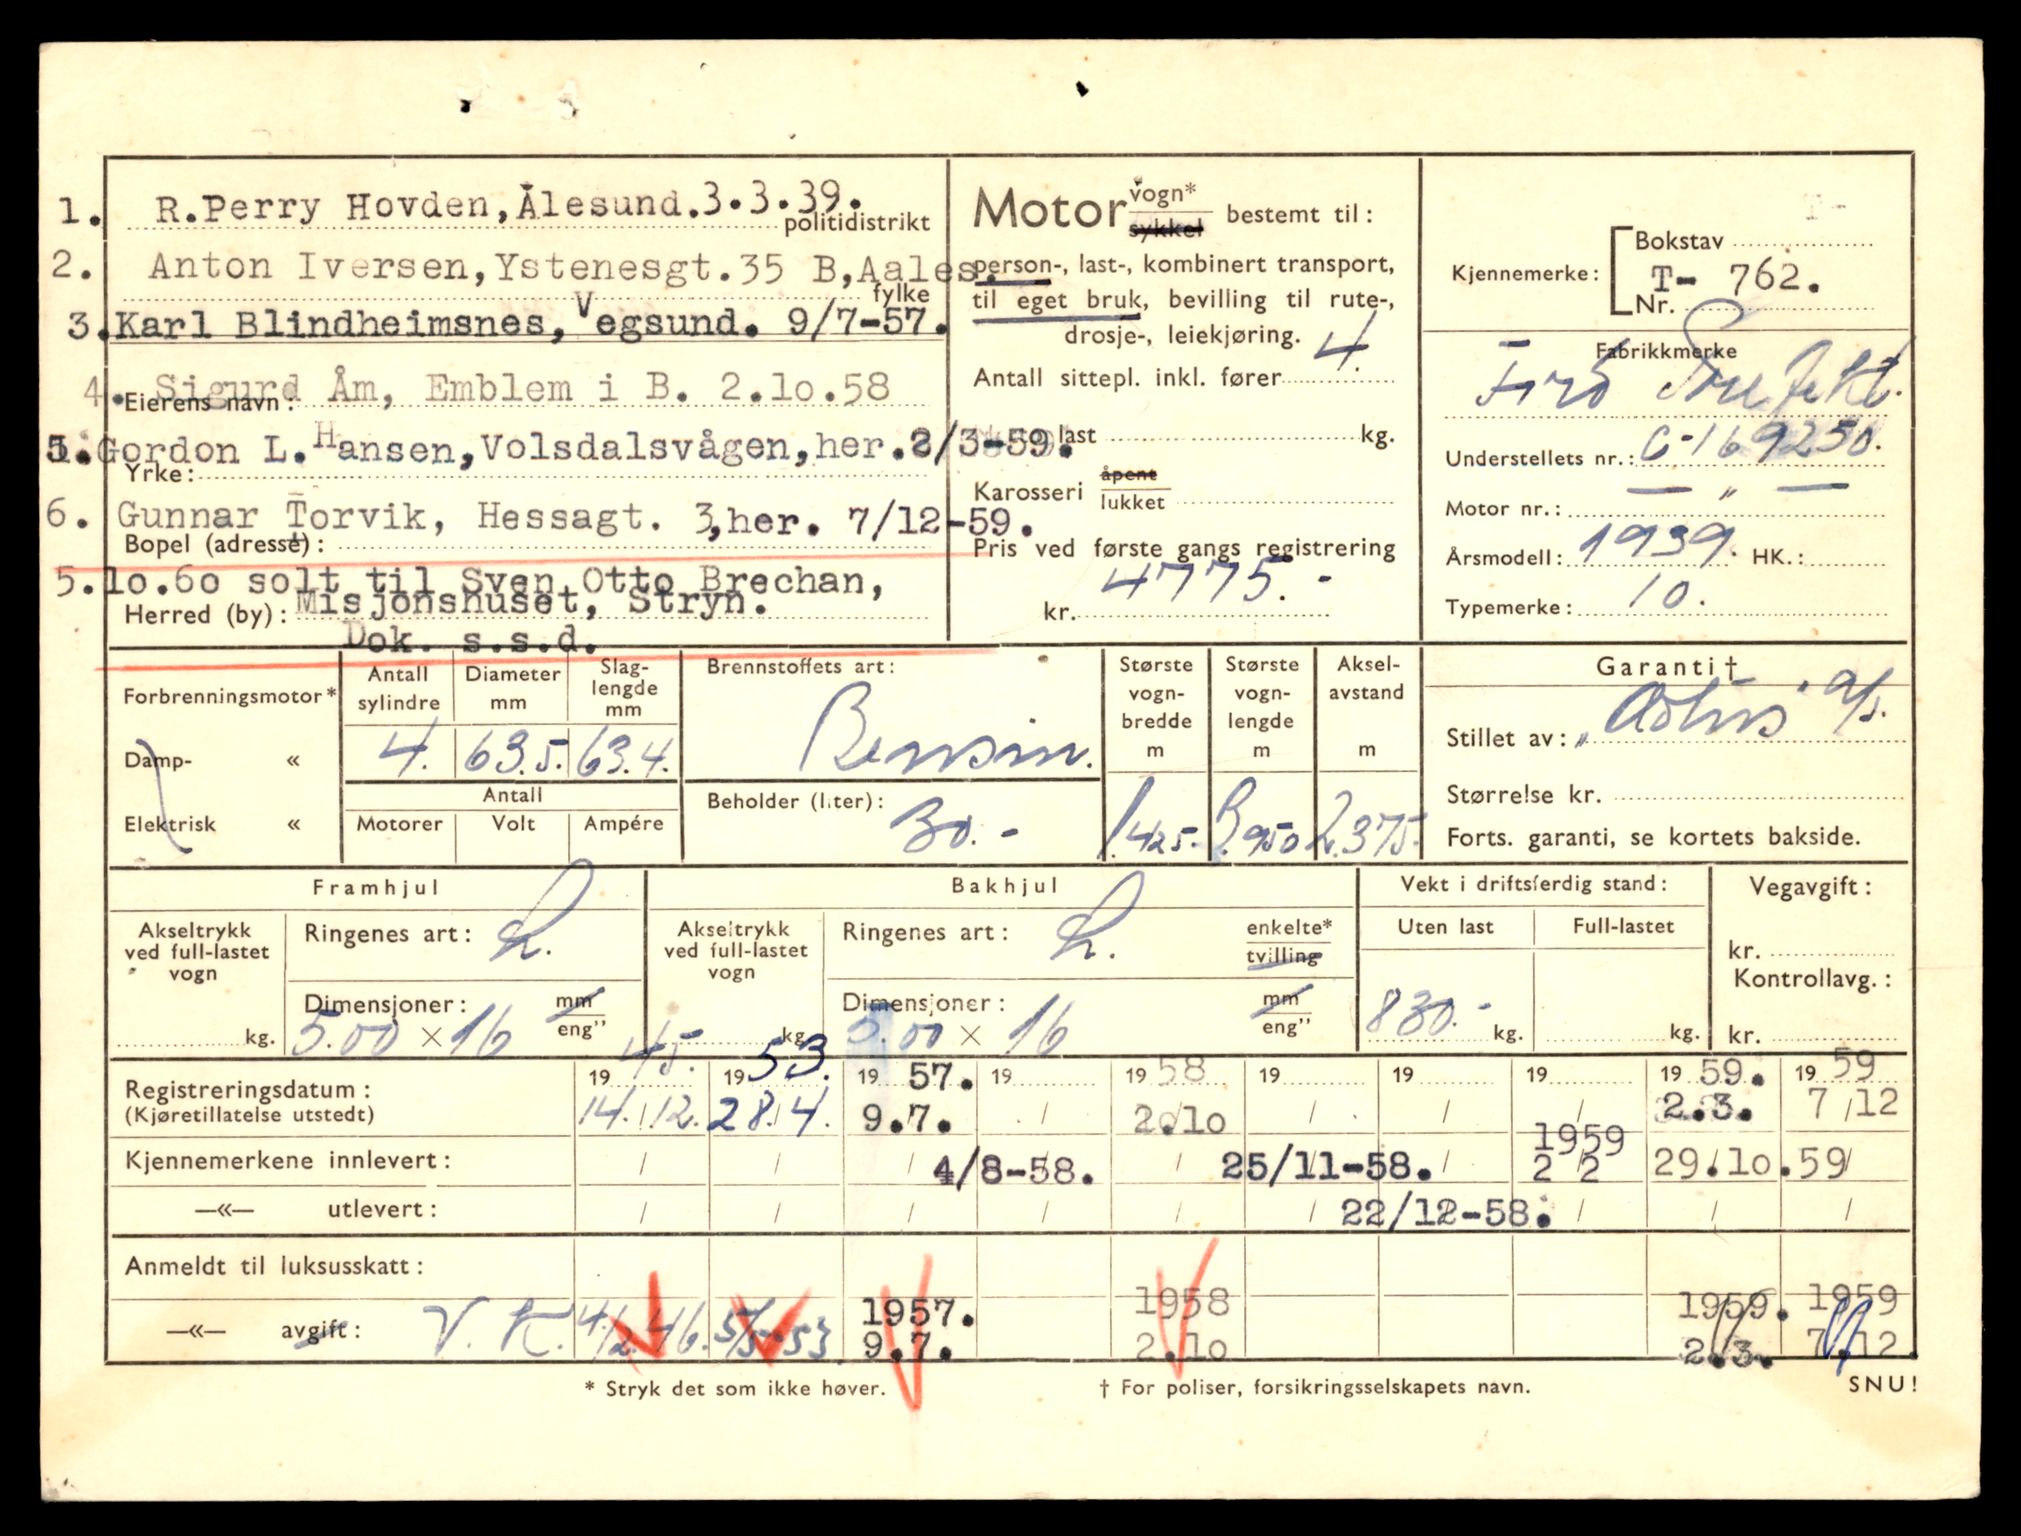 1. R.Perry Hovden,Ålesund.3.3.39.
politidistrikt
2. Anton Iversen,Ystenesgt.35 B,Aales.
fylke
3.Karl Blindheimsnes,Vegsund. 9/7-57.
4. Sigurd Åm, Emblem i B. 2.lo.58
Eierens navn:
5.Gordon L.Hansen,Volsdalsvågen,her.2/3-59.
Yrke:
6. Gunnar Torvik, Hessagt. 3,her. 7/12-59.
Bopel (adresse):
5.lo.6o solt til Sven Otto Brechan,
Misjonshuset, Stryn.
Herred (by):
Dok. s.s.d.
Motor vogn* sykkel bestemt til:
person-, last-, kombinert transport,
til eget bruk, bevilling til rute-,
drosje-, leiekjøring.
Antall sittepl. inkl. fører 4.
last kg.
Karosseri åpent lukket
Pris ved første gangs registrering
kr. 4775.-
T-
Kjennemerke: Bokstav
T- 762.
Nr.
Fabrikkmerke
Ford Prefekt.
Understellets nr.: C-169250.
Motor nr.: — " —
Årsmodell: 1939. HK.:
Typemerke: 10.
Forbrenningsmotor*
Damp- «
Elektrisk «
Antall sylindre
4.
Diameter mm
63.5.
Slag-lengde mm
63.4.
Antall
Motorer Volt Ampére
Brennstoffets art:
Bensin.
Beholder (liter):
30.-
Største vogn-bredde m
1.425.
Største vogn-lengde m
3.950
Aksel-avstand m
2.375.
Garanti†
Stillet av: a/s.
Størrelse kr.
Forts. garanti, se kortets bakside.
Framhjul
Akseltrykk ved full-lastet vogn
kg.
Ringenes art: L.
Dimensjoner: mm eng"
5.00 × 16
Bakhjul
Akseltrykk ved full-lastet vogn
kg.
Ringenes art: L. enkelte* tvilling
Dimensjoner: mm eng"
5.00 × 16
Vekt i driftsferdig stand:
Uten last Full-lastet
830.- kg. kg.
Vegavgift:
kr.
Kontrollavg.:
kr.
Registreringsdatum: 1945. 1953. 1957. 19 1958 19 19 19 1959. 1959
(Kjøretillatelse utstedt) 14./12. 28./4. 9.7. / 2.lo / / / 2.3. 7/12
Kjennemerkene innlevert: / / / 4/8-58. / 25/11-58. / 1959 2/2 29.lo.59 /
—«— utlevert: / / / / / / 22/12-58. / / /
Anmeldt til luksusskatt:
—«— avgift: V. K. 4/12.46. 5/5-53 1957. 9.7. 1958 2.lo 1959. 2.3. 1959 7.12.
* Stryk det som ikke høver. † For poliser, forsikringsselskapets navn. SNU!